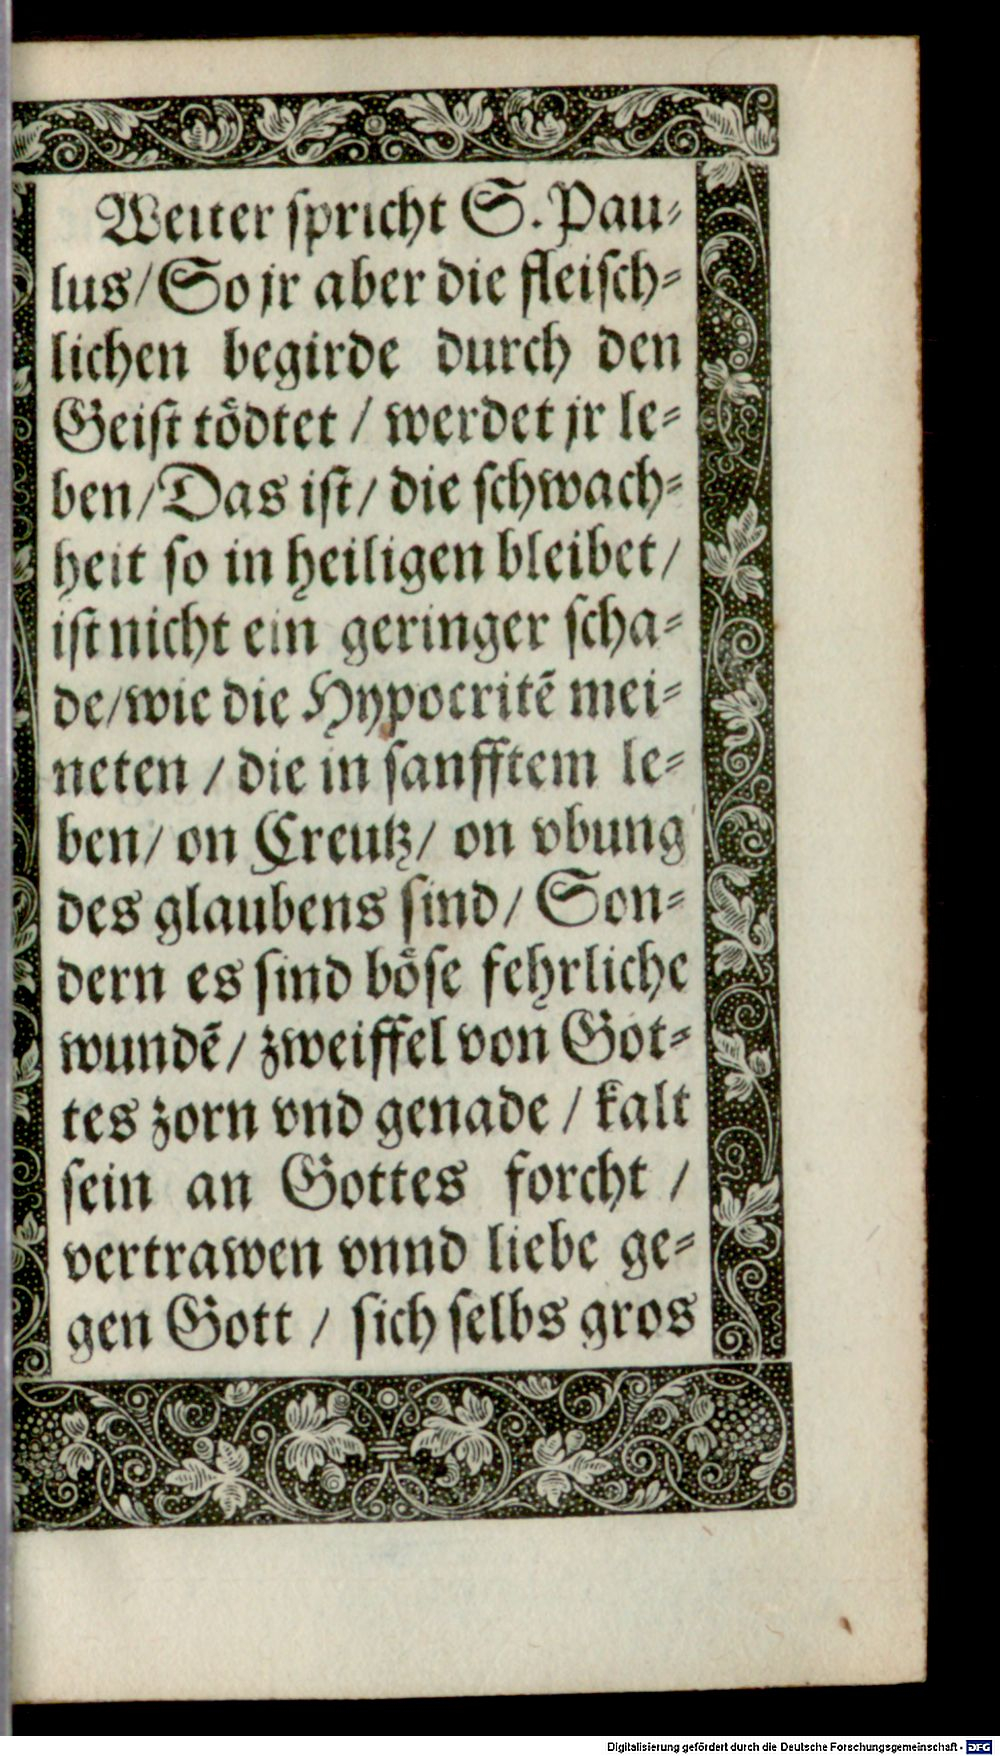 Weiter ſpricht S. Pau⸗
lus/ So jr aber die fleiſch⸗
lichen begirde durch den
Geiſt toͤdtet / werdet jr le⸗
ben/ Das iſt/ die ſchwach⸗
heit ſo in heiligen bleibet/
iſt nicht ein geringer ſcha⸗
de/ wie die Hypocritē mei⸗
neten / die in ſanfftem le⸗
ben/ on Creutz/ on vbung
des glaubens ſind/ Son⸗
dern es ſind boͤſe fehrliche
wundē/ zweiffel von Got⸗
tes zorn vnd genade / kalt
ſein an Gottes forcht /
vertrawen vnnd liebe ge⸗
gen Gott / ſich ſelbs gros
Digitalisierung gefördert durch die Deutsche Forschungsgemeinschaft - DFG